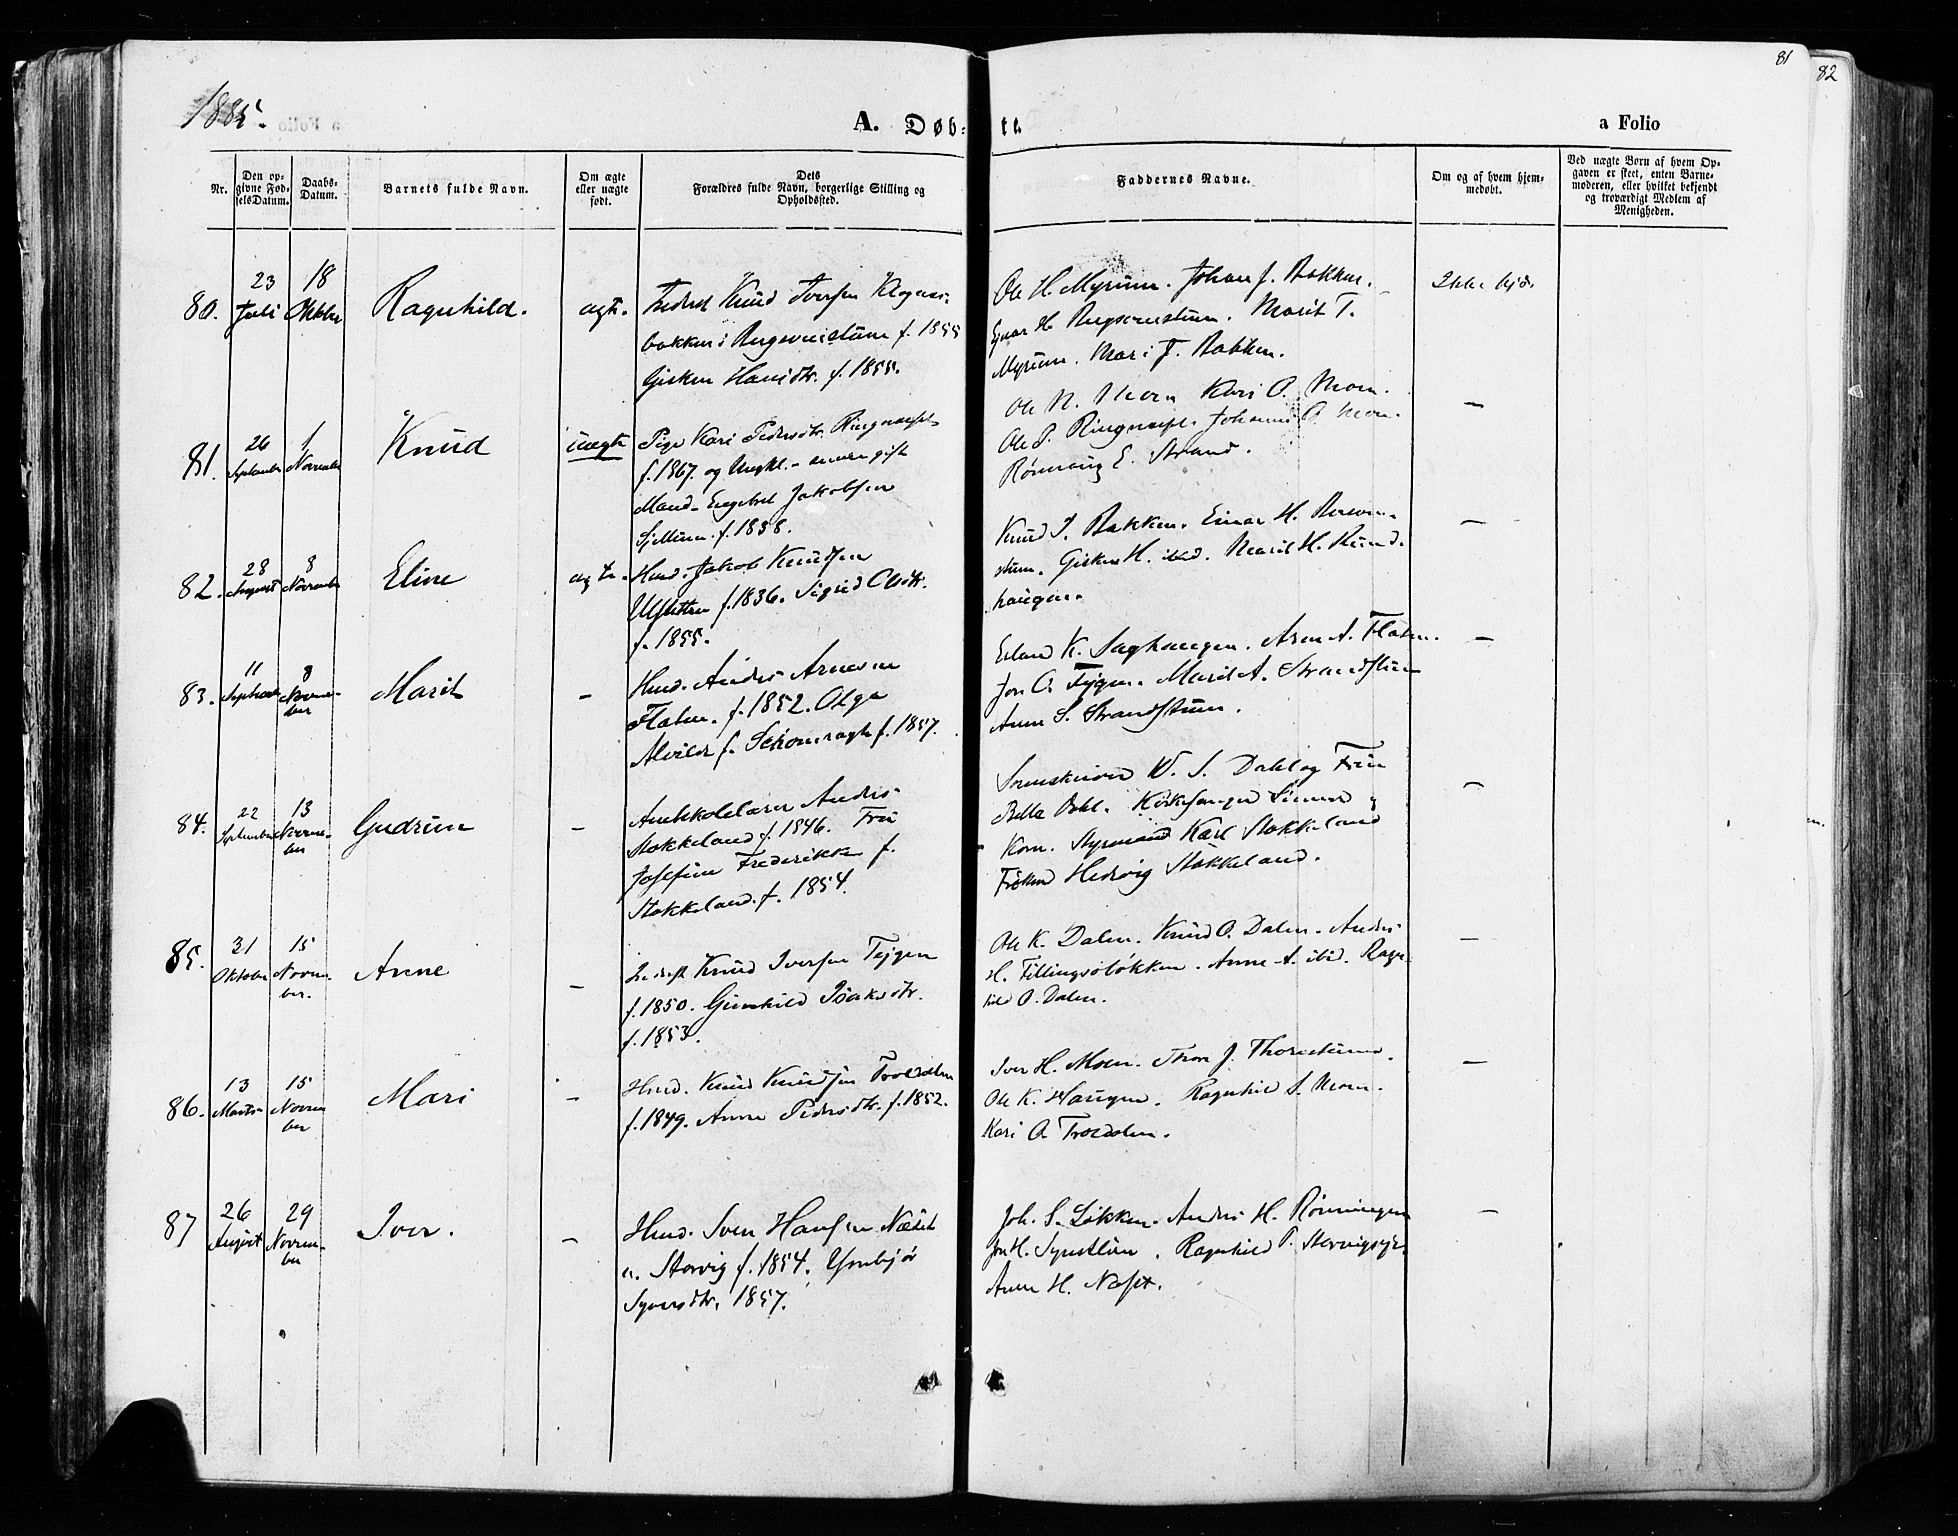 81
82
1885.
A. Døb- te.
a Folio
Nr.
Den op-
givne Fød-
selsDatum.
Daabs-
Datum.
Barnets fulde Navn.
Om ægte
eller uægte
født.
Dets
Forældres fulde Navn, borgerlige Stilling og
Opholdssted.
Faddernes Navne.
Om og af hvem hjem-
medøbt.
Ved uægte Børn af hvem Op-
gaven er skeet, enten Barne-
moderen, eller hvilket bekjendt
og troværdigt Medlem af
Menigheden.
80. 23 Juli 18 Oktober Ragnhild. ægte. Knud Iversen
f. 1855
Gisken Hansdtr. f. 1855.
Ole H. Myrum. Johan J. Bakken.
Marit T.
Myrum. Mari J. Bakken.
Ikke hjd.
81. 26 September 1 November Knud uægte Pige Kari Pedersdtr.
f. 1867. og Ungkl. - senere gift
Mand - Engebret Jakobsen
f. 1858.
Ole N. Moen Kari O. Moen.
Ole P. Johannes O. Moen.
Rønnaug E. Strand.
—
82. 28 August 8 November Eline ægte. Husd. Jakob Knudsen
f. 1836. Sigrid Olsdtr.
f. 1855.
Knud I. Bakken. Einar H.
Gisken H. ibid. Marit H.
haugen.
—
83. 11 September 8 November Marit — Husd. Anders Arnesen
Flaten. f. 1852. Olga
Alvilde f. f. 1857.
Erland K. Saghaugen. Arne A. Flaten.
Jon O. Marit A. Strandstuen
Anne S. Strandstuen.
—
84. 22 September 13 November Gudrun — Amtskolelærer Anders
Stokkeland f. 1846. Fru
Josefine Frederikke f.
Stokkeland. f. 1854.
Sorenskriver W. S. Dahl og Fru
Bella Dahl. Kirkesanger
Kone. Styrmand Karl Stokkeland
Frøken Hedvig Stokkeland.
—
85. 31 Oktober 15 November. Anne — Knud Iversen Tejgen
f. 1850. Gunhild Isaksdtr.
f. 1853.
Ole K. Dalen. Knud O. Dalen. Anders
H. Fillingsløkken. Anne A. ibid. Ragn-
hild O. Dalen.
—
86. 13 Marts 15 November Mari — Husd. Knud Knudsen Troedalen
f. 1849. Anne Pedersdtr. f. 1852.
Iver H. Moen. J.
Ole K. Haugen. Ragnhild S. Moen.
Kari O. Troedalen.
—
87 26 August 29 November Iver. — Husd. Sven Hansen
u. Storvig f. 1854. Ymbjør
Syversdtr. 1857.
Joh. S. Løkken. Anders H. Rønningen
Jon H. Ragnhild P.
Anne H.
—